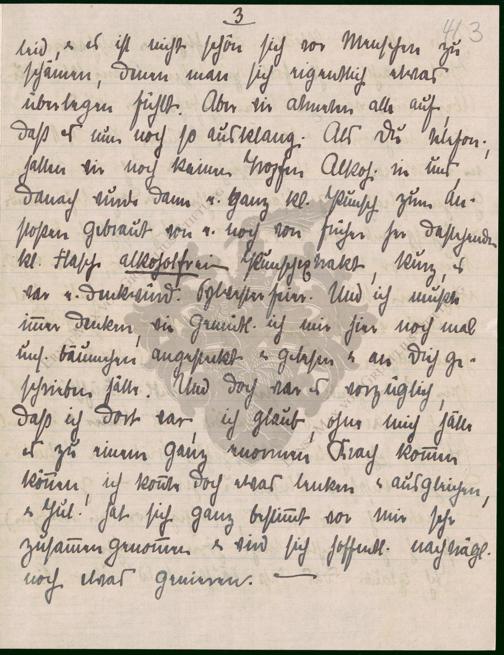 3
413
leid, & es ist nicht schön sich vor Menschen zu
schämen, denen man sich eigentlich etwas
überlegen fühlt. Aber wir atmeten alle auf,
daß es nun noch so ausklang. Als Du telefon.,
hatten wir noch keinen Tropfen Alkoh. in uns
danach wurde dann e. ganz kl. Punsch zum An-
stoßen gebraut von e. noch von früher her dastehenden
kl. Flasche alkoholfrei Punschextrakt, kurz, es
war e. denkwürd. Sylvesterfeier. Und ich mußte
immer denken, wie gemütl. ich mir hier noch mal
uns. Bäumchen angesteckt & gelesen & an Dich ge-
schrieben hätte. Und doch war es vorzüglich,
daß ich dort war, ich glaub, ohne mich hätte
es zu einem ganz enormen Krach kommen
können, ich konnte doch etwas lenken & ausgleichen,
& Jul. hat sich ganz bestimmt vor mir sehr
zusammengenommen & wird sich hoffentl. nachträgl.
noch etwas genieren. —